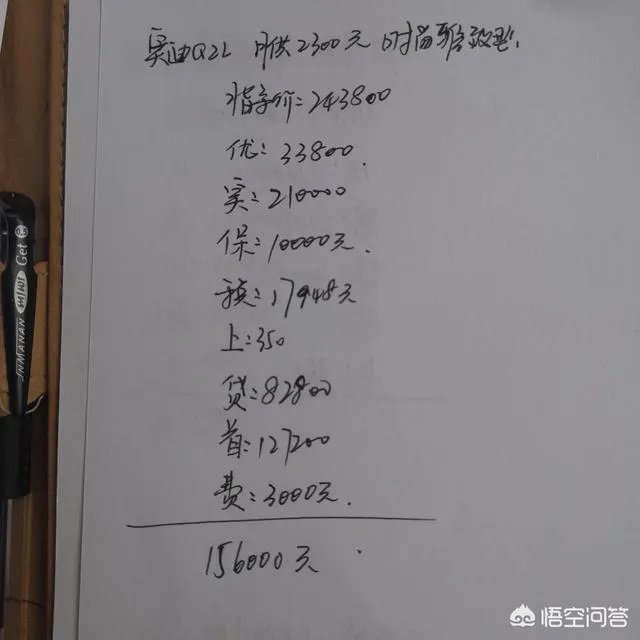 奥迪Q2L 月供2300元 时尚雅致型.
指导价:243800
优:33800.
实:210000
保:10000元.
税:17948元
上:350
贷:82800
首:127200
费:3000元.
156000元
JNMANAN 晋江 Get
悟空问答